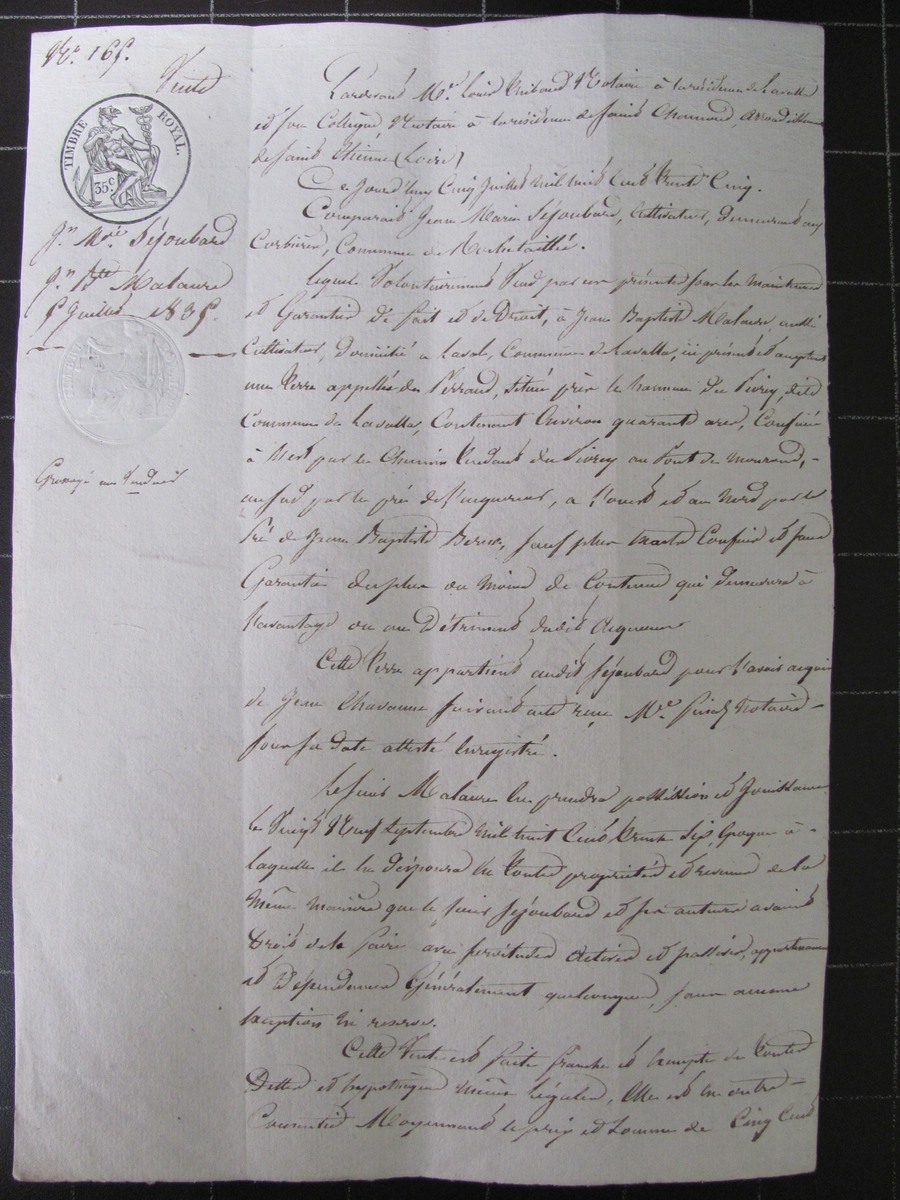 No. 165.
Vente
TIMBRE ROYAL.
35c
Jn. Mie Séjoubard
Jn. Bte Malaure
5 Juillet 1835.
Grossoyé au
Pardevant Me. Louis Thibaud Notaire à la résidence de Lavalla
et son Collègue Notaire à la résidence de Saint Chamond, arrondissement
de Saint Etienne (Loire)
Ce jourd'hui Cinq Juillet mil huit Cent trente Cinq.
Comparait Jean Marie Séjoubard, Cultivateur, demeurant aux
Corbières, Commune de Rochetaillée.
Lequel Volontairement Vend par ces présentes sous les maintenue
et Garantie de fait et de Droit, à Jean Baptiste Malaure aussi
Cultivateur, Domicilié à Laval, Commune de Lavalla, ici présent et acceptant
une terre appellée du Perraud, située près le hameau du Pivrey, dite
Commune de Lavalla, Contenant Environ quarante ares, Confinée
à l'Est par le Chemin tendant du Pivrey au Pont de
au sud par le pré de l'acquéreur, à l'ouest et au Nord par le
Pré de Jean Baptiste sauf plus vrais Confins et sans
Garantie du plus ou moins de Contenue qui demeurera à
l'avantage ou au Détriment dudit acquéreur
Cette terre appartient audit Séjoubard pour l'avoir acquise
de Jean Chavanne suivant acte reçu Me. Notaire
sous sa date attesté Enregistré.
Le sieur Malaure En prendra possession et Jouissance
le Vingt Neuf septembre mil huit Cent trente Six, Epoque à
laquelle il En Disposera En toutes propriétés et revenus de la
même manière que le sieur Séjoubard et ses auteurs avaient
Droit de le faire avec servitudes actives et passives, appartenances
et Dépendances Généralement quelconques, sans aucune
Exception ni reserve.
Cette Vente est faite franche et Exempte de toutes
Dettes et hypothèques même légales, Elle est En outre
Consentie Moyennant le prix et somme de Cinq Cent